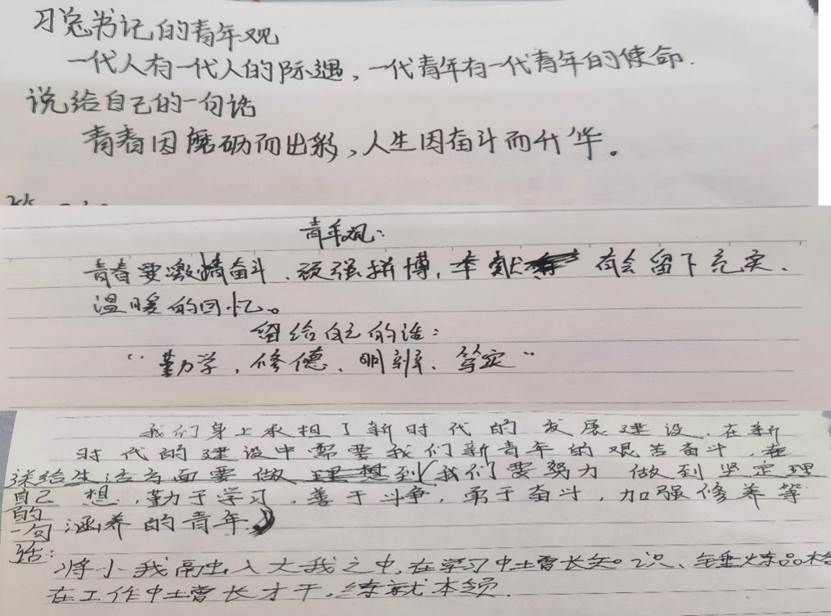 习总书记的青年观
一代人有一代人的际遇，一代青年有一代青年的使命.
说给自己的一句话
青春因磨砺而出彩，人生因奋斗而升华。
青年观：
青春要激情奋斗、顽强拼搏，奉献 有会留下充实、
温暖的回忆。
留给自己的话：
“勤学，修德、明辨、笃实”
我们身上承担了新时代的发展建设，在新
时代的建设中需要我们新青年的艰苦奋斗，在
生活方面要做理想到我们要努力 做到坚定理
想，勤于学习，善于斗争，勇于奋斗，加强修养等
涵养的青年
送给自己的一句话：
将小我融入大我之中，在学习中土曾长知识、锤炼品格
在工作中土曾长才干，练就本领